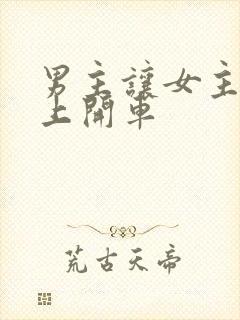 男主讓女主
上開車
荒古天帝